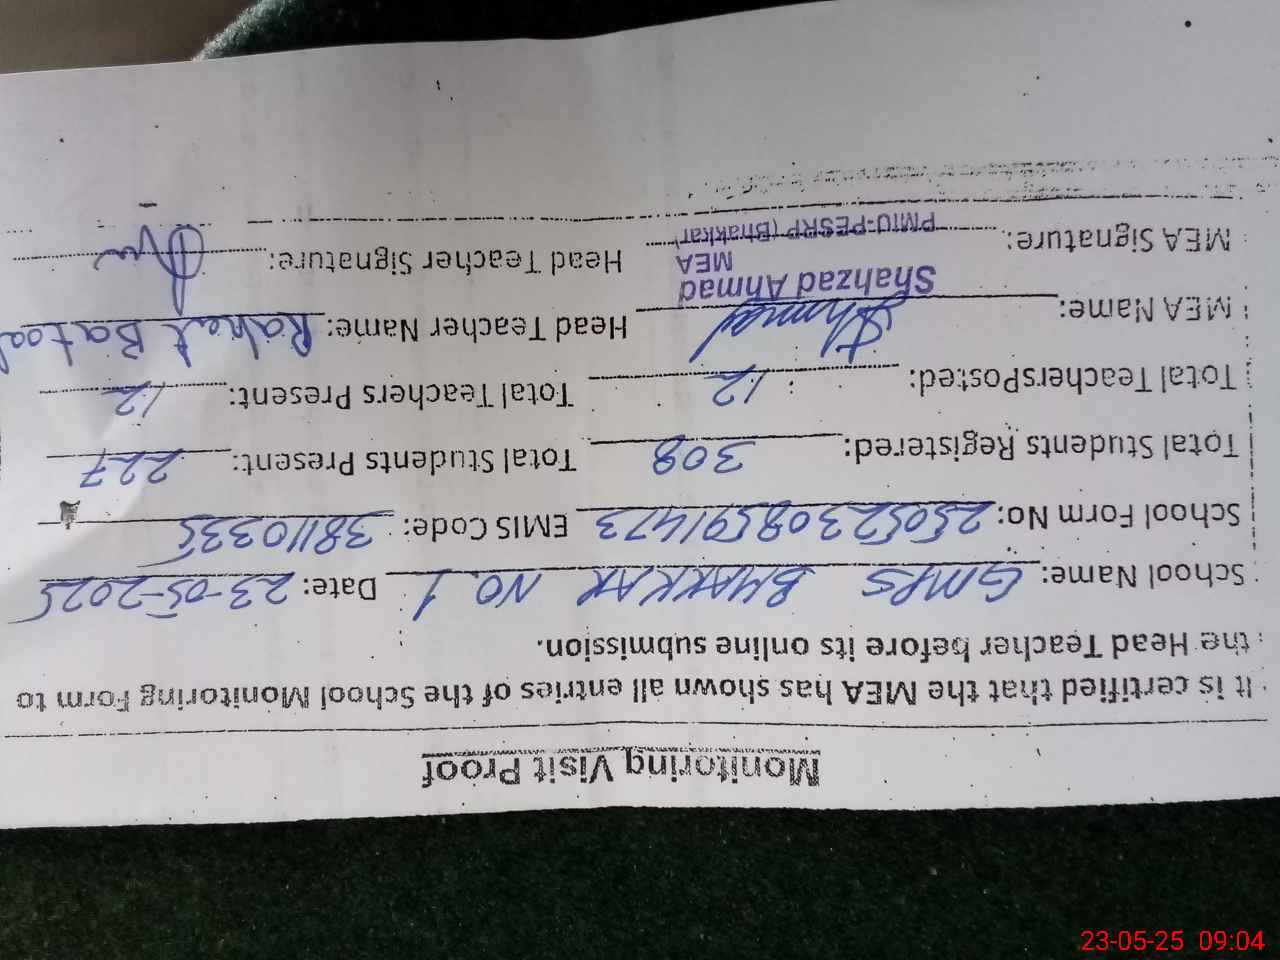 Monitoring Visit Proof
It is certified that the MEA has shown all entries of the School Monitoring Form to
the Head Teacher before its online submission.
School Name: GMPS BHAKKAR NO. 1 Date: 23-05-2025
School Form No: 25052308591473 EMIS Code: 38110335
Total Students Registered: 308 Total Students Present: 227
Total TeachersPosted: 12 Total Teachers Present: 12
MEA Name: Ahmad Head Teacher Name: Rahat Batool
Shahzad Ahmad
MEA
MEA Signature: PMIU-PESRP (Bhakkar) Head Teacher Signature:
23-05-25 09:04